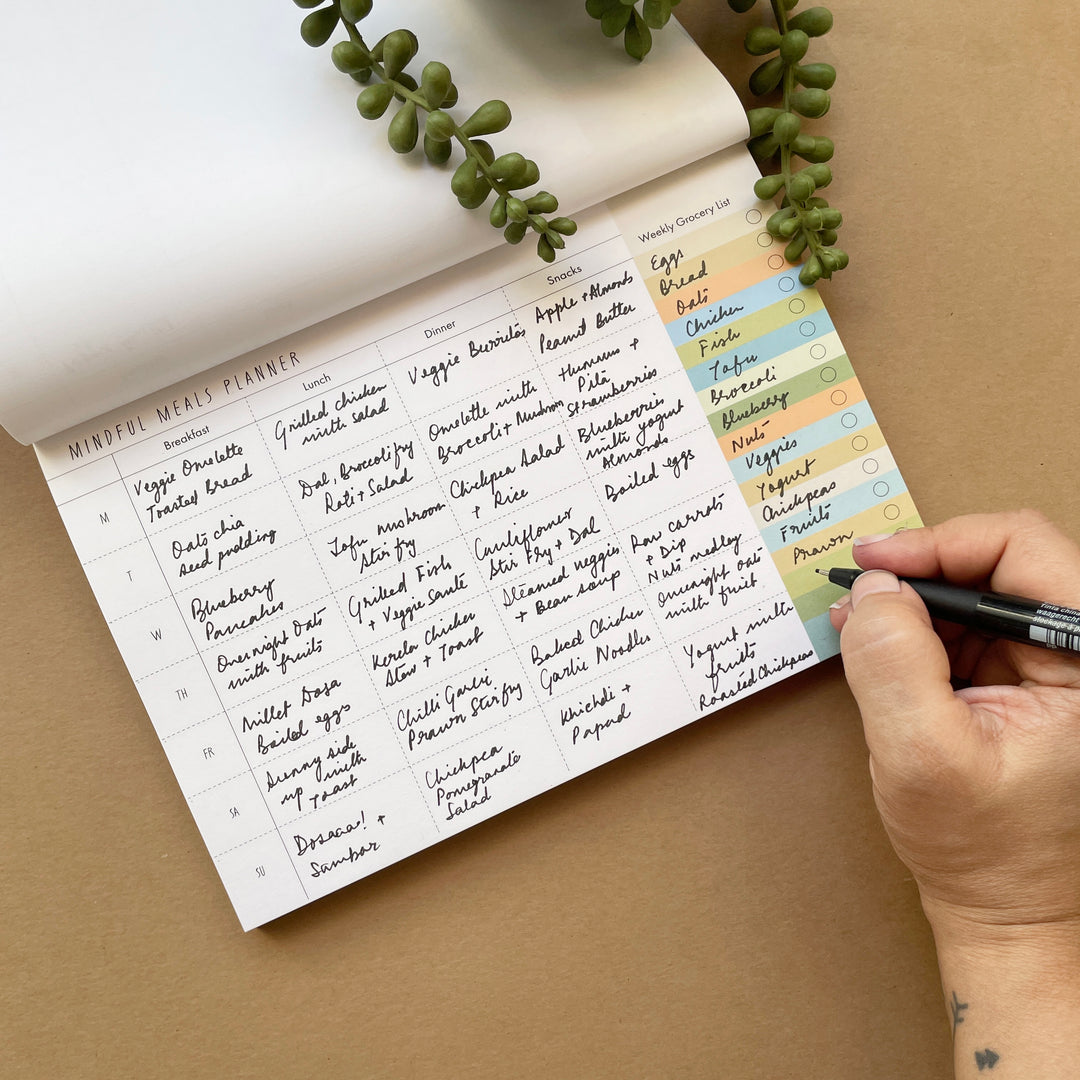 MINDFUL MEALS PLANNER
Breakfast
Lunch
Dinner
Snacks
M
Veggie Omelette
Toasted Bread
Grilled chicken
with salad
Veggie Burritos
Apple + Almonds
Peanut Butter
T
Oats chia
seed pudding
Dal, Broccoli fry
Roti + Salad
Omelette with
Broccoli + Mushroom
Hummus +
Pita
Strawberries
W
Blueberry
Pancakes
Tofu mushroom
Stir fry
Chickpea Salad
+ Rice
Blueberries
with yogurt
Almonds
TH
Overnight Oats
with fruits
Grilled Fish
+ Veggie Sauté
Cauliflower
Stir Fry + Dal
Boiled eggs
FR
Millet Dosa
Boiled eggs
Kerela Chicken
Stew + Toast
Steamed veggies
+ Bean soup
Raw carrots
+ Dip
Nuts medley
SA
Sunny side
up with
Toast
Chilli Garlic
Prawn Stirfry
Baked Chicken
Garlic Noodles
Overnight oats
with fruit
SU
Dosaaa! +
Sambar
Chickpea
Pomegranate
Salad
Khichdi +
Papad
Yogurt with
fruits
Roasted Chickpeas
Weekly Grocery List
Eggs
Bread
Oats
Chicken
Fish
Tofu
Broccoli
Blueberry
Nuts
Veggies
Yogurt
Chickpeas
Fruits
Prawn
Tinta china
waagerecht